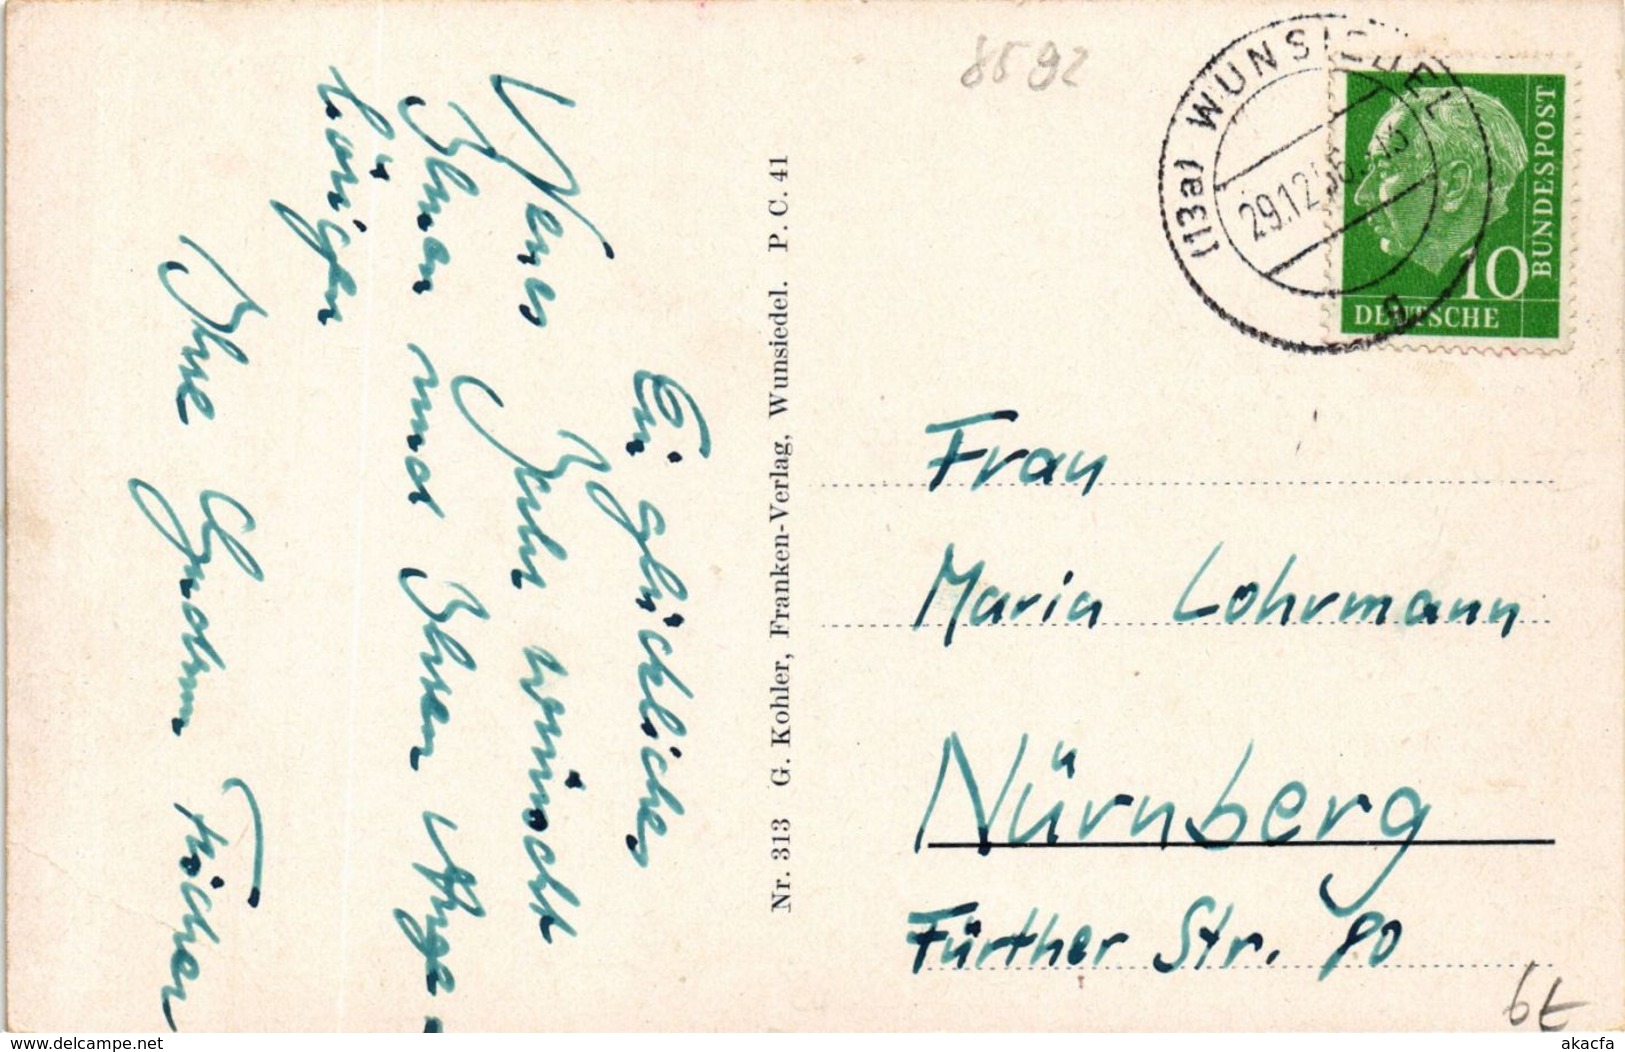 Ein glückliches
Neues Jahr wünscht
Ihnen und Ihren Ange-
hörigen
Ihre
Fischer
Nr. 313 G. Kohler, Franken-Verlag, Wunsiedel. P. C. 41
8592
(13a) WUNSIEDEL
29.12.
a
BUNDESPOST
10
DEUTSCHE
Frau
Maria Lohrmann
Nürnberg
Fürther Str. 80
www.delcampe.net
akacfa